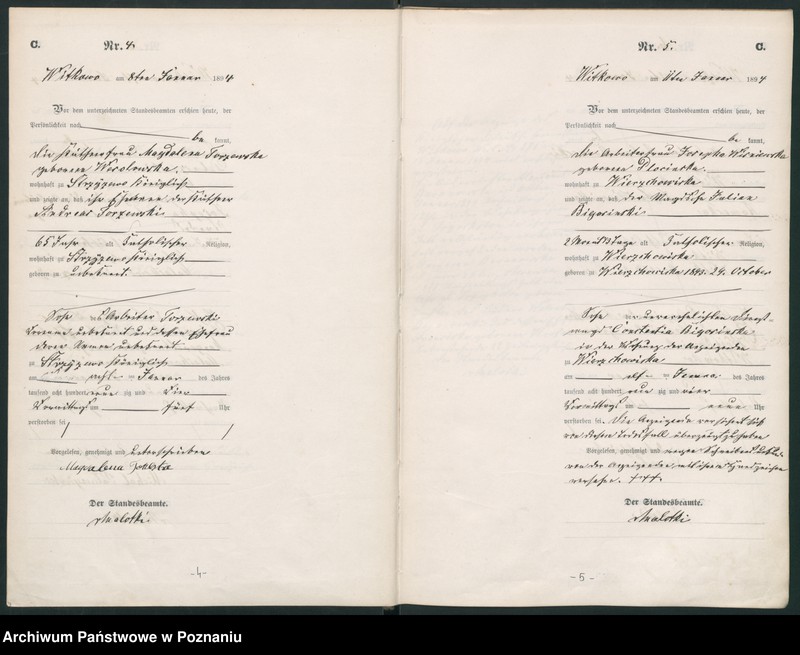 C.
Nr. 4.
Witkowo am 8ten Januar 1894
Vor dem unterzeichneten Standesbeamten erschien heute, der
Persönlichkeit nach
be kannt,
die Magdalena
geborene
wohnhaft zu Königlich
und zeigte an, daß ihr Ehemann der
Andreas
65 Jahr alt Katholischer Religion,
wohnhaft zu Königlich
geboren zu unbekannt
Sohn des Arbeiter
unbekannt und dessen Ehefrau
deren Name unbekannt
zu Königlich
am acht Januar des Jahres
tausend acht hundert neun zig und vier
Vormittags um fünf Uhr
verstorben sei
Vorgelesen, genehmigt und unterschrieben
Magdalena
Der Standesbeamte.
Malotki
-4-
C.
Nr. 5.
Witkowo am 11ten Januar 1894
Vor dem unterzeichneten Standesbeamten erschien heute, der
Persönlichkeit nach
be kannt,
die Arbeiterfrau Josepha
geborene
wohnhaft zu Wierzchowiska
und zeigte an, daß der
Bigosinski
2 Monat alt Katholischer Religion,
wohnhaft zu Wierzchowiska
geboren zu Wierzchowiska 1893. 24. October
Sohn der unverehelichten
Constantia Bigosinska
in der Wohnung der Anzeigenden
zu Wierzchowiska
am elf Januar des Jahres
tausend acht hundert neun zig und vier
Vormittags um neun Uhr
verstorben sei. Die Anzeigende versichert sich
von diesem Todesfall überzeugt zu haben
Vorgelesen, genehmigt und wegen
von der Anzeigenden mit ihrem Handzeichen
versehen. +++
Der Standesbeamte.
Malotki
-5-
Archiwum Państwowe w Poznaniu